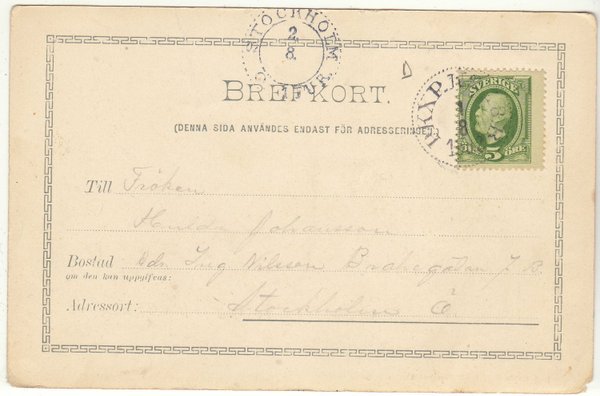 STOCKHOLM
2
8.
1 TUR.
BREFKORT.
(DENNA SIDA ANVÄNDES ENDAST FÖR ADRESSERINGEN.)
PKXP.
SVERIGE
5 ÖRE
Till Fröken
Hulda Johansson
Bostad Adr. Ing Nilsson Brahegatan 7 B.
om den kan uppgifvas:
Adressort: Stockholm Ö.